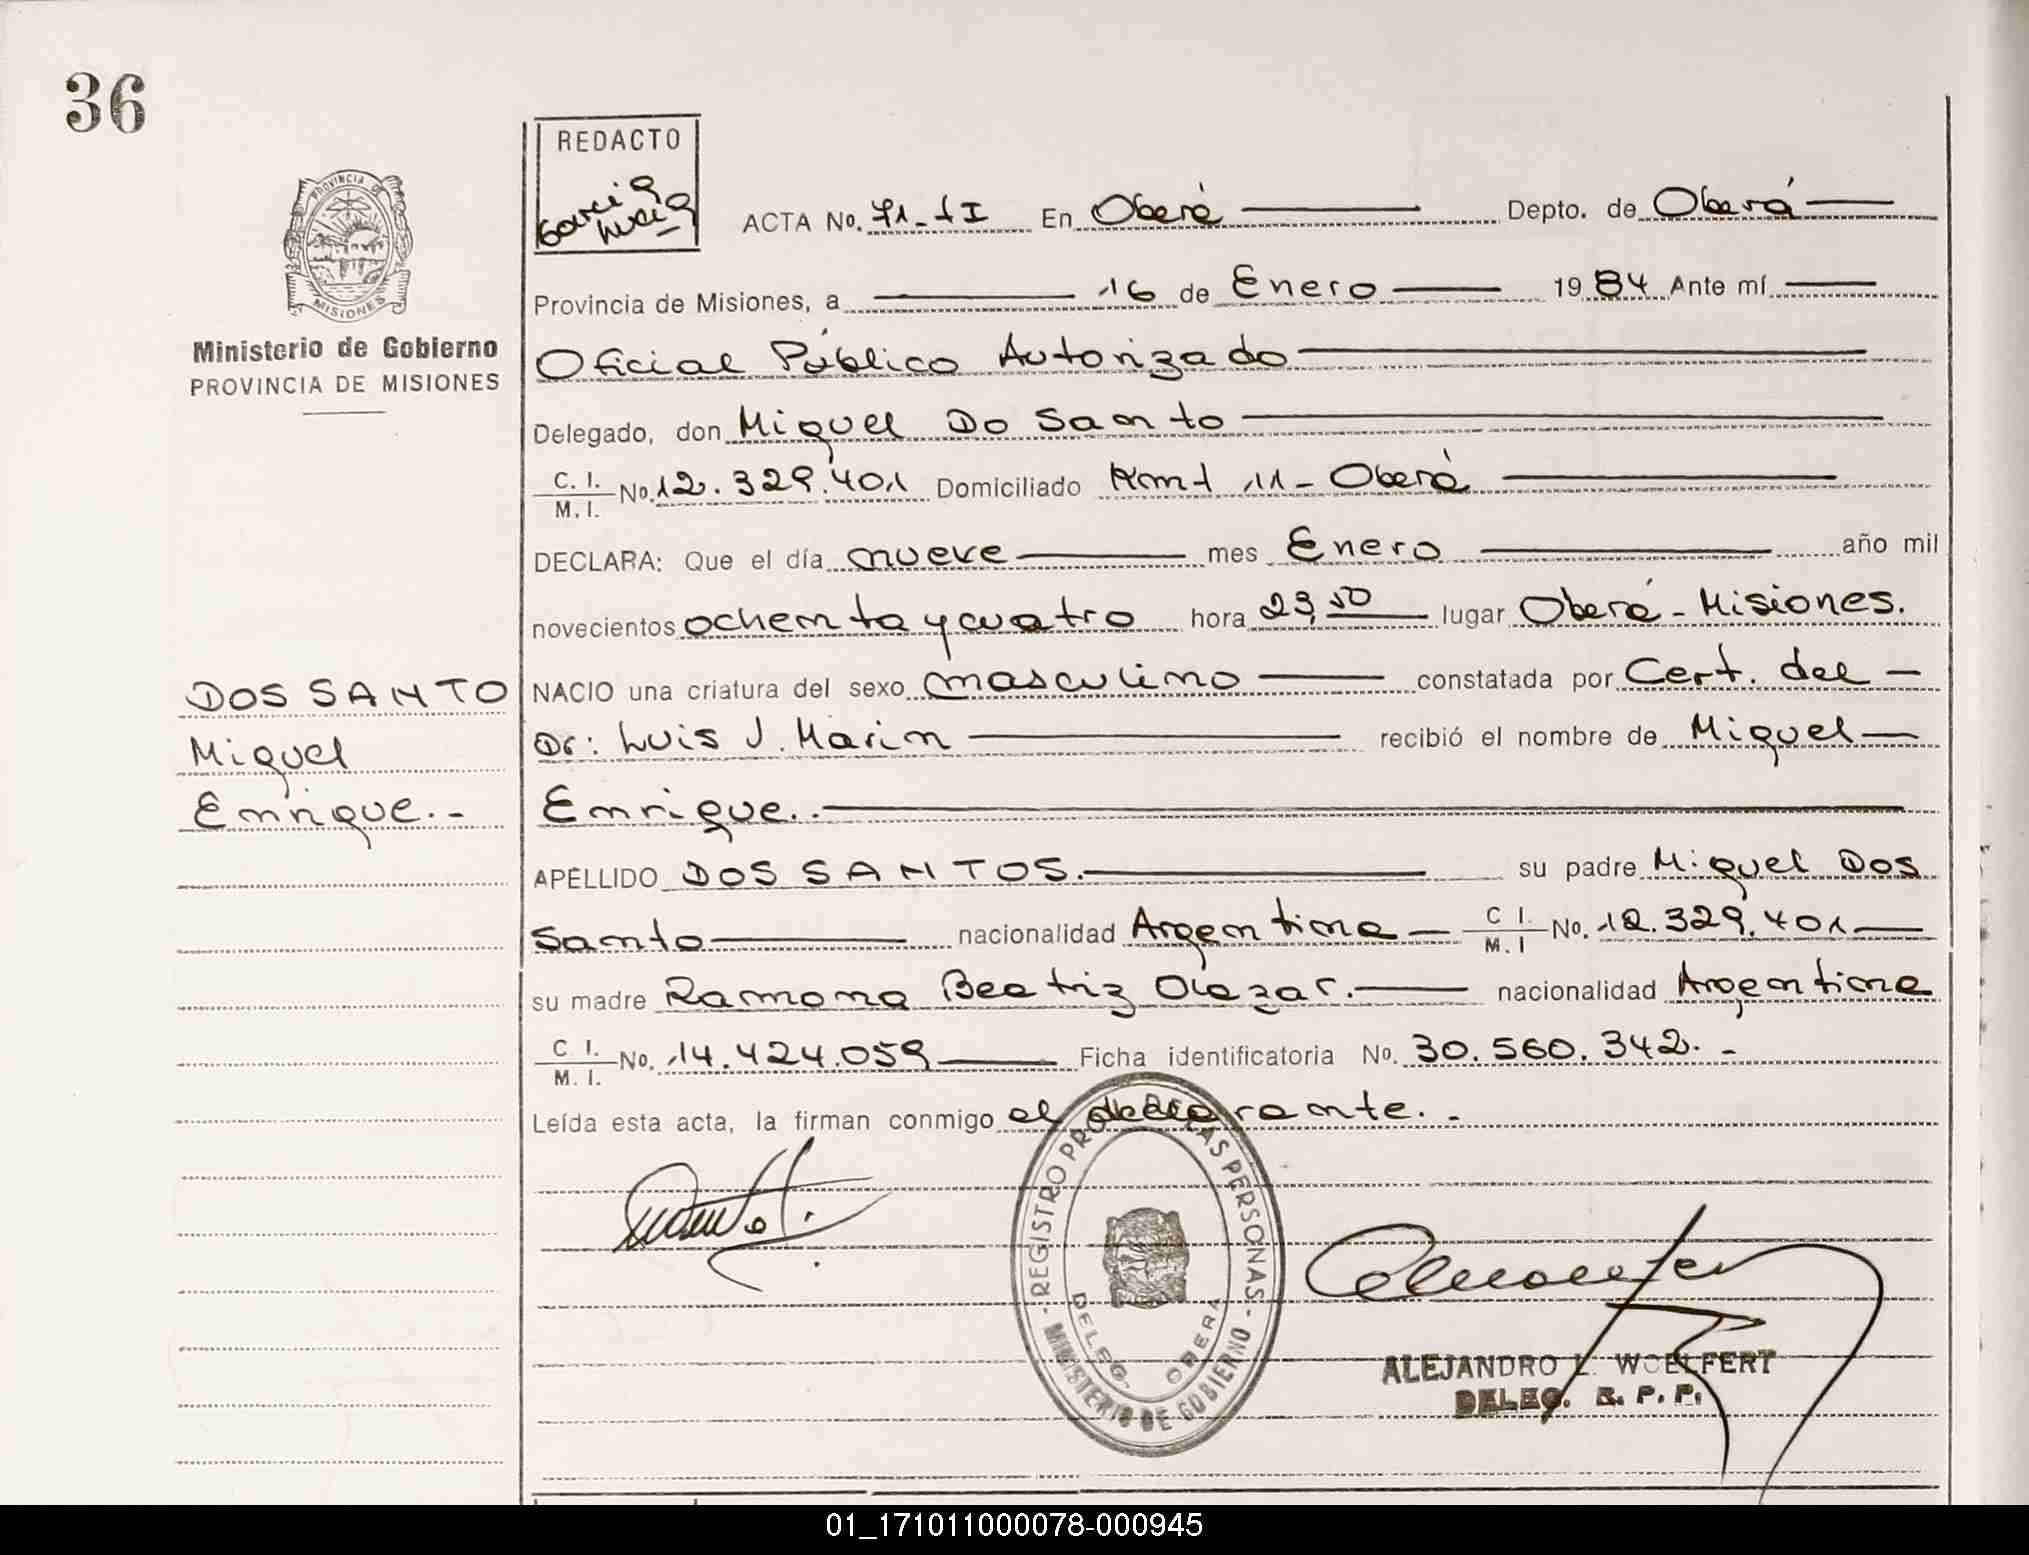 36
REDACTO
Garcia
Lucia
ACTA No. 71-tI En Oberá Depto. de Oberá
PROVINCIA DE
MISIONES
Provincia de Misiones, a 16 de Enero 1984 Ante mí
Ministerio de Gobierno
PROVINCIA DE MISIONES
Oficial Público Autorizado
Delegado, don Miguel Do Santo
C. I. M. I. No. 12.329.401 Domiciliado Kmt 11 - Oberá
DECLARA: Que el día nueve mes Enero año mil
novecientos ochenta y cuatro hora 23,50 lugar Oberá - Misiones.
DOS SANTO
Miguel
Enrique.-
NACIO una criatura del sexo masculino constatada por Cert. del
Dr: Luis J. Marin recibió el nombre de Miguel
Enrique.
APELLIDO DOS SANTOS. su padre Miguel Dos
Santo nacionalidad Argentina C I. M. I No. 12.329.401
su madre Ramona Beatriz Olazar. nacionalidad Argentina
C I. M. I. No. 14.424.059 Ficha identificatoria No. 30.560.342.-
Leída esta acta, la firman conmigo el declarante.-
REGISTRO LAS PERSONAS
DELEG. OBERA
MINISTERIO DE GOBIERNO
ALEJANDRO L. WOELFERT
DELEG. R. P. P.
01_171011000078-000945